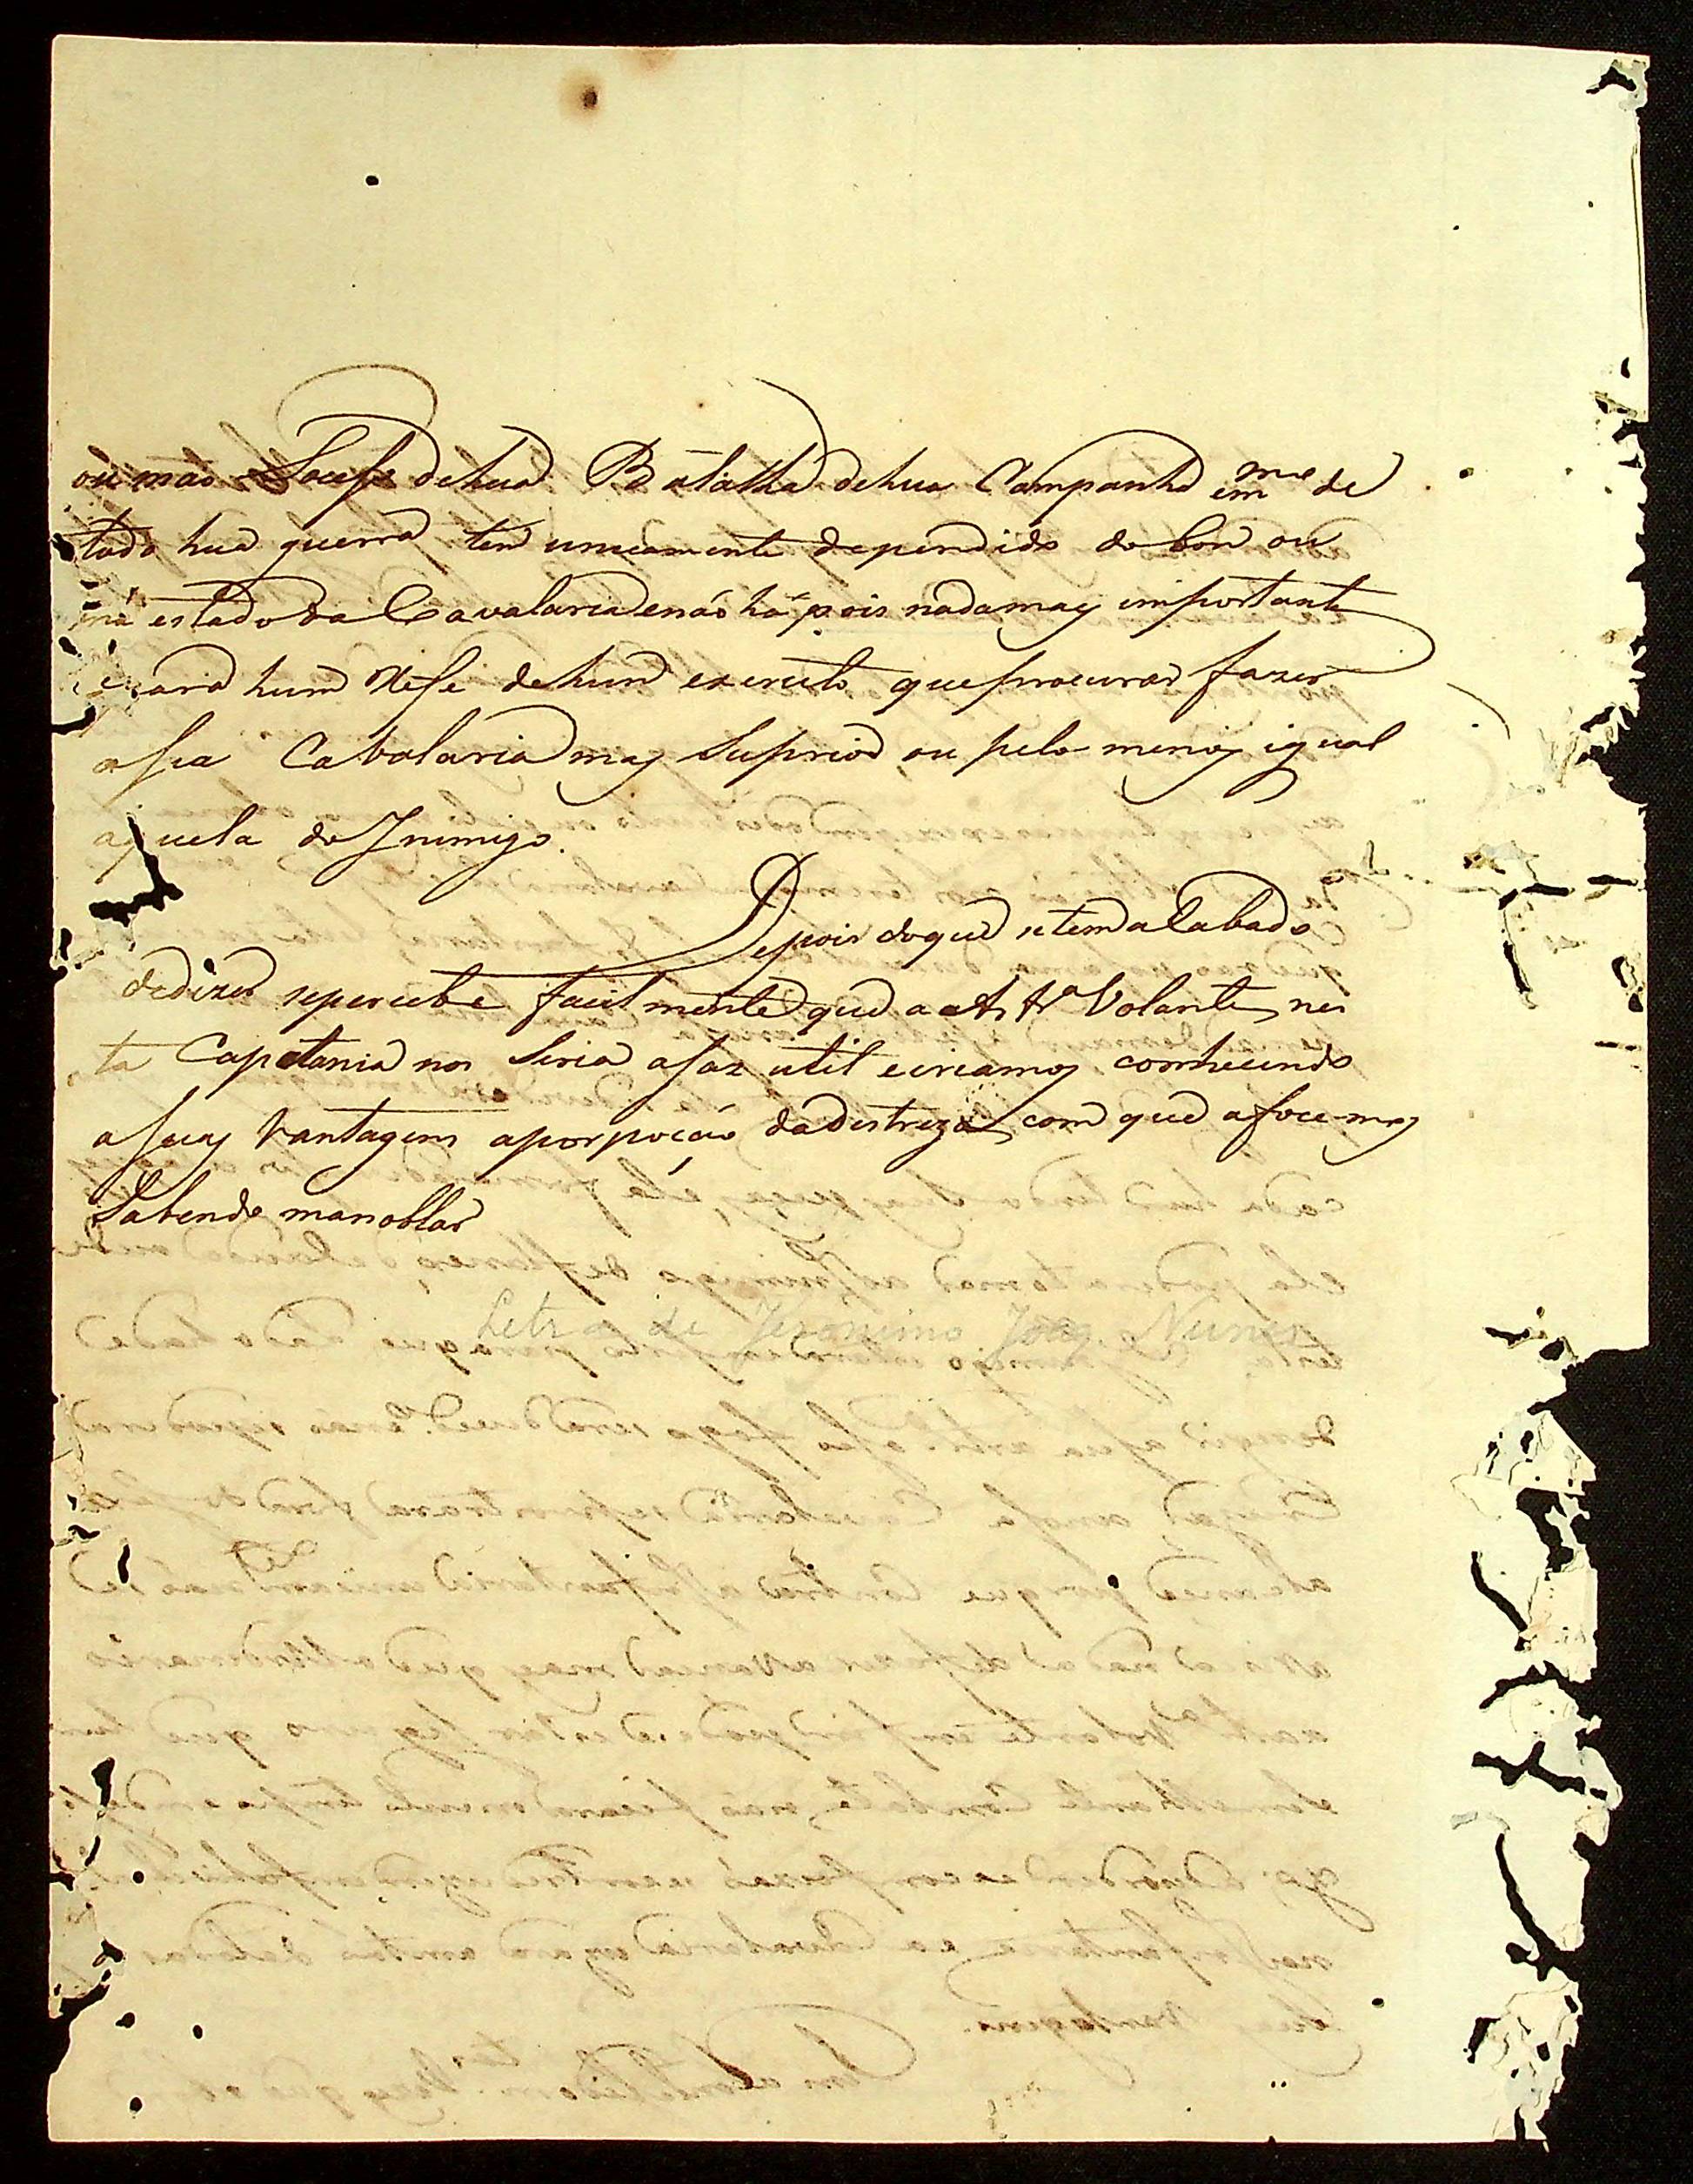 ou máo Sucesso dehua Batalha dehua Campanha em me de
toda hua guerra tem unicamente dependido do bom ou
má estado da Cavalaria enáo há pois nada may importante
para hum Xefe dehum exercito que procurar fazer
asua Cavalaria may Suprior ou pelo menoz igual
aquela do Inimigo.
Depois doque setem acabado
dedizer sepercebe facilmente que a Artra Volante nes
ta Capetania nos Seria asaz util eiriamoz conhecendo
assuaz Vantagens aporpocáo dadistreza com que afocemoz
Sabendo manoblar
Letra de Jeronimo Joaq. Nunes